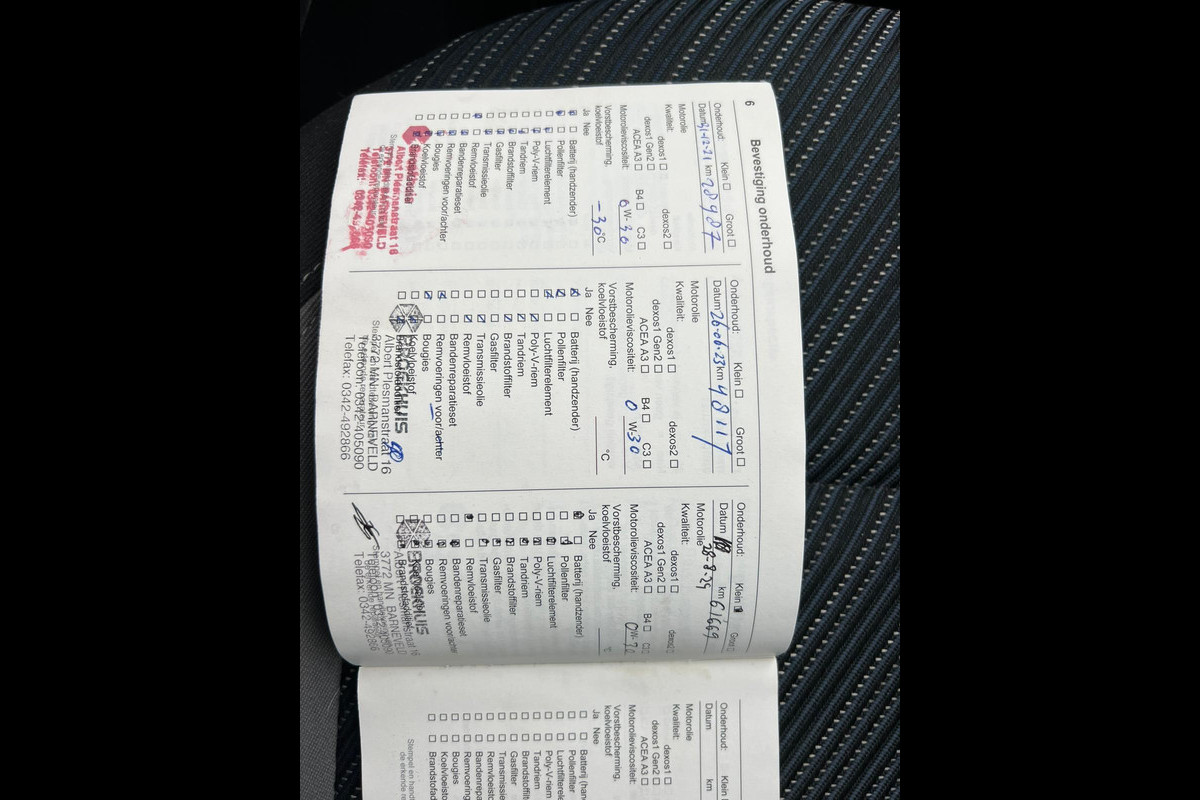 6
Bevestiging onderhoud
Onderhoud: Klein Groot
Datum 31-12-21 km 28987
Motorolie
Kwaliteit: dexos1 dexos2
dexos1 Gen2
ACEA A3 B4 C3
Motorolieviscositeit: 0W-30
Vorstbescherming,
koelvloeistof -30°C
Ja Nee
Batterij (handzender)
Pollenfilter
Luchtfilterelement
Poly-V-riem
Tandriem
Brandstoffilter
Gasfilter
Transmissieolie
Remvloeistof
Bandenreparatieset
Remvoeringen voor/achter
Bougies
Koelvloeistof
Albert Plesmanstraat 16
3772 MN BARNEVELD
Telefoon: 0342-405090
Telefax:
Onderhoud: Klein Groot
Datum 26-06-23 km 48117
Motorolie
Kwaliteit: dexos1 dexos2
dexos1 Gen2
ACEA A3 B4 C3
Motorolieviscositeit: 0 W-30
Vorstbescherming,
koelvloeistof °C
Ja Nee
Batterij (handzender)
Pollenfilter
Luchtfilterelement
Poly-V-riem
Tandriem
Brandstoffilter
Gasfilter
Transmissieolie
Remvloeistof
Bandenreparatieset
Remvoeringen voor/achter
Bougies
Koelvloeistof
BROEKHUIS
Albert Plesmanstraat 16
3772 MN BARNEVELD
Telefoon: 0342-405090
Telefax: 0342-492866
Onderhoud: Klein Groot
Datum 28-8-24 km 61669
Motorolie
Kwaliteit: dexos1 dexos2
dexos1 Gen2
ACEA A3 B4 C3
Motorolieviscositeit: 0W-
Vorstbescherming, °C
koelvloeistof
Ja Nee
Batterij (handzender)
Pollenfilter
Luchtfilterelement
Poly-V-riem
Tandriem
Brandstoffilter
Gasfilter
Transmissieolie
Remvloeistof
Bandenreparatieset
Remvoeringen voor/achter
Bougies
BROEKHUIS
3772 MN BARNEVELD
Telefax: 0342-492866
Onderhoud: Klein
Datum km
Motorolie
Kwaliteit: dexos1
dexos1 Gen2
ACEA A3
Motorolieviscositeit:
Vorstbescherming,
koelvloeistof
Ja Nee
Batterij (han
Pollenfilter
Luchtfilterel
Poly-V-riem
Tandriem
Brandstoffilt
Gasfilter
Transmissie
Remvloeisto
Bandenrepa
Remvoering
Bougies
Koelvloeisto
Brandstofad
Stempel en hand
de erkende re